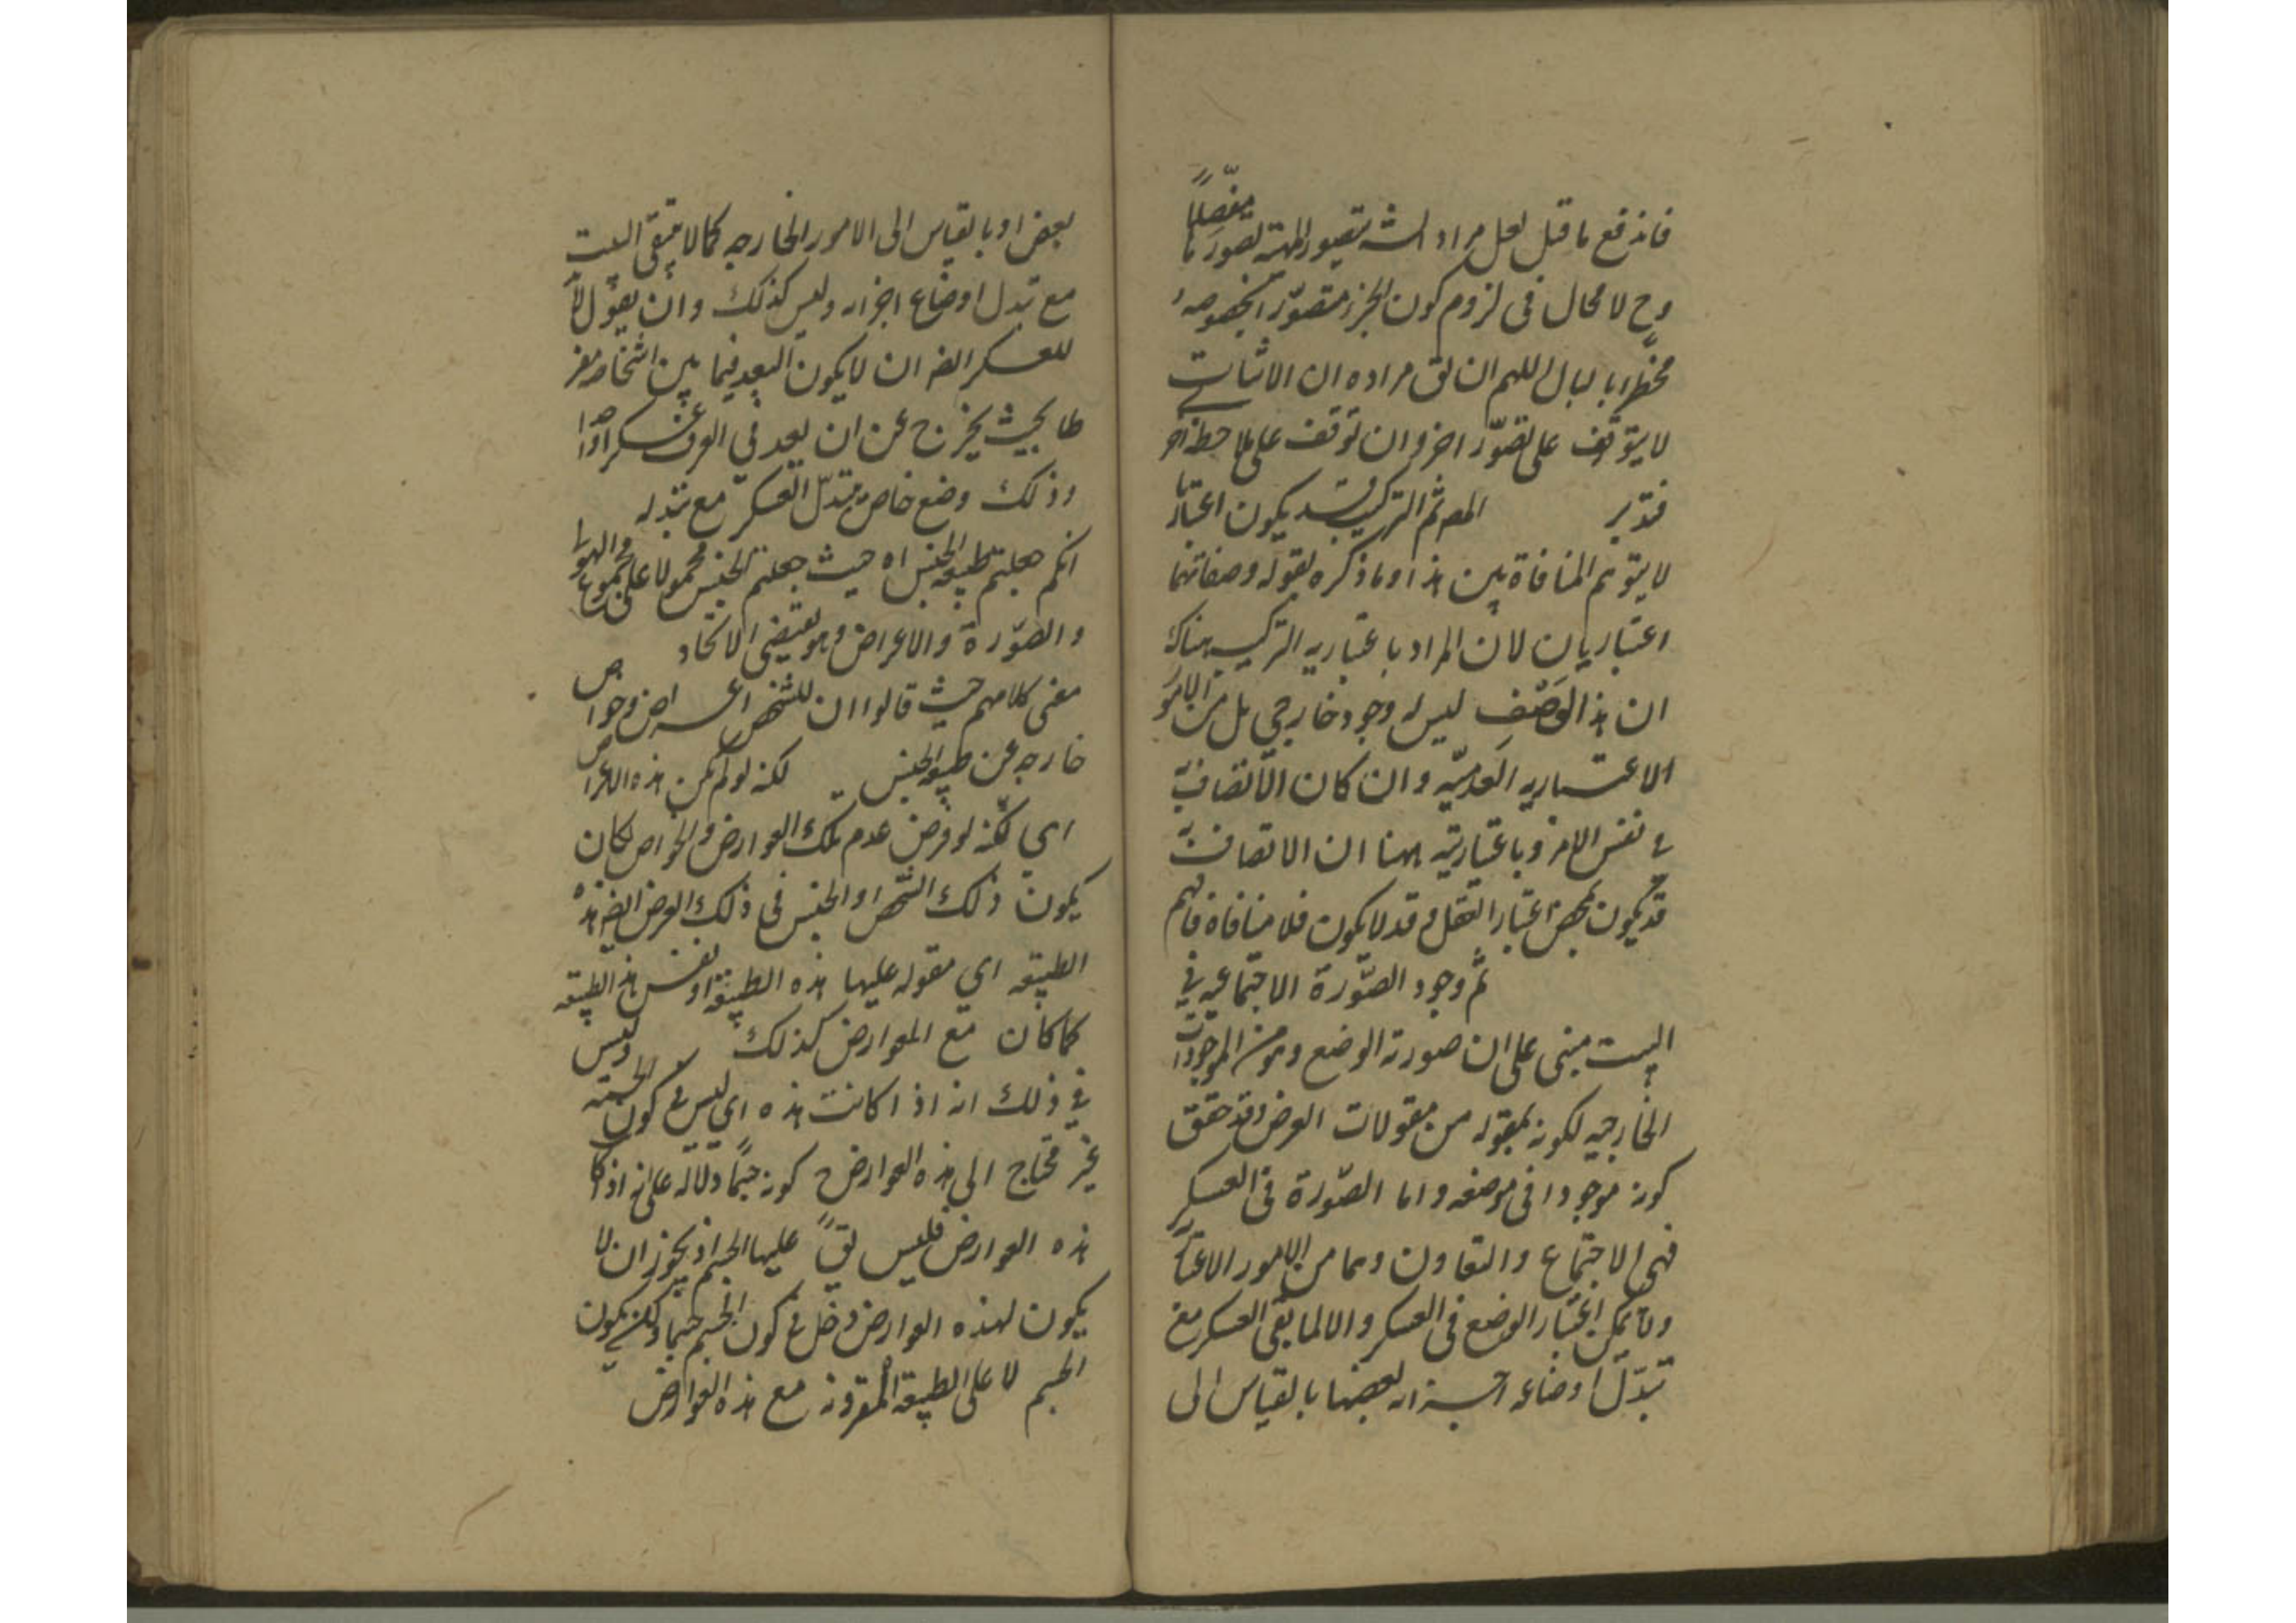 فاندفع ما قيل لعل مراد الش تصور المهية تصورا مفصلا
وح لا محال فى لزوم كون الجزء متصورا بخصوصه
مخطرا بالبال اللهم ان يق مراده ان الاثبات
لا يتوقف على تصور اخر وان توقف على ملاحظة اخر
فتدبر المص ثم التركيب قد يكون اعتباريا
لا يتوهم المنافاة بين هذا وما ذكره بقوله وصفاتها
اعتباريان لان المراد باعتباريه التركيب هناك
ان هذا الوصف ليس له وجود خارجي بل من الامور
الاعتباريه العدميه وان كان الاتصاف به
في نفس الامر وباعتباريته ههنا ان الاتصاف به
قد يكون بمحض اعتبار العقل وقد لا يكون فلا منافاة فافهم
ثم وجود الصورة الاجتماعيه في
البيت مبنى على ان صورته الوضع وهو من الموجودات
الخارجيه لكونه مقوله من مقولات العرض وقد حقق
كونه موجودا فى موضعه واما الصورة فى العسكر
فهى الاجتماع والتعاون وهما من الامور الاعتباريه
ولا يمكن اعتبار الوضع فى العسكر والا لما بقى العسكر مع
تبدل اوضاعه اجزائه بعضها بالقياس الى
بعض او بالقياس الى الامور الخارجه كما لا يبقى البيت
مع تبدل اوضاع اجزائه وليس كذلك وان يقول لا بد
للعسكر ايضا ان لا يكون البعد فيما بين اشخاصه مفر
طا بحيث يخرج عن ان يعد في العرف عسكرا واحدا
وذلك وضع خاص يتبدل العسكر مع تبدله
انكم جعلتم طبيعة الجنس اه حيث جعلتم الجنس محمولا على مجموع الهيولى
والصورة والاعراض وهو يقتضى الاتحاد
معنى كلامهم حيث قالوا ان للشخص اعراض وخواص
خارجه عن طبيعة الجنس لكنه لو لم يكن هذه الاعراض
اي لكنه لو فرض عدم تلك العوارض والخواص لكان
يكون ذلك الشخص او الجنس فى ذلك الفرض ايضا هذه
الطبيعه اي مقوله عليها هذه الطبيعة او نفس هذه الطبيعه
كما كان مع العوارض كذلك وليس
في ذلك انه اذا كانت هذه اي ليس في كون الجسميه
غير محتاج الى هذه العوارض كونه جسما دلاله على انه اذا كا
هذه العوارض فليس يق عليها الجسم اذ يجوز ان لا
يكون لهذه العوارض دخل في كون الجسم جسما ولكن يكون
الجسم لا على الطبيعة المقرونه مع هذه العوارض